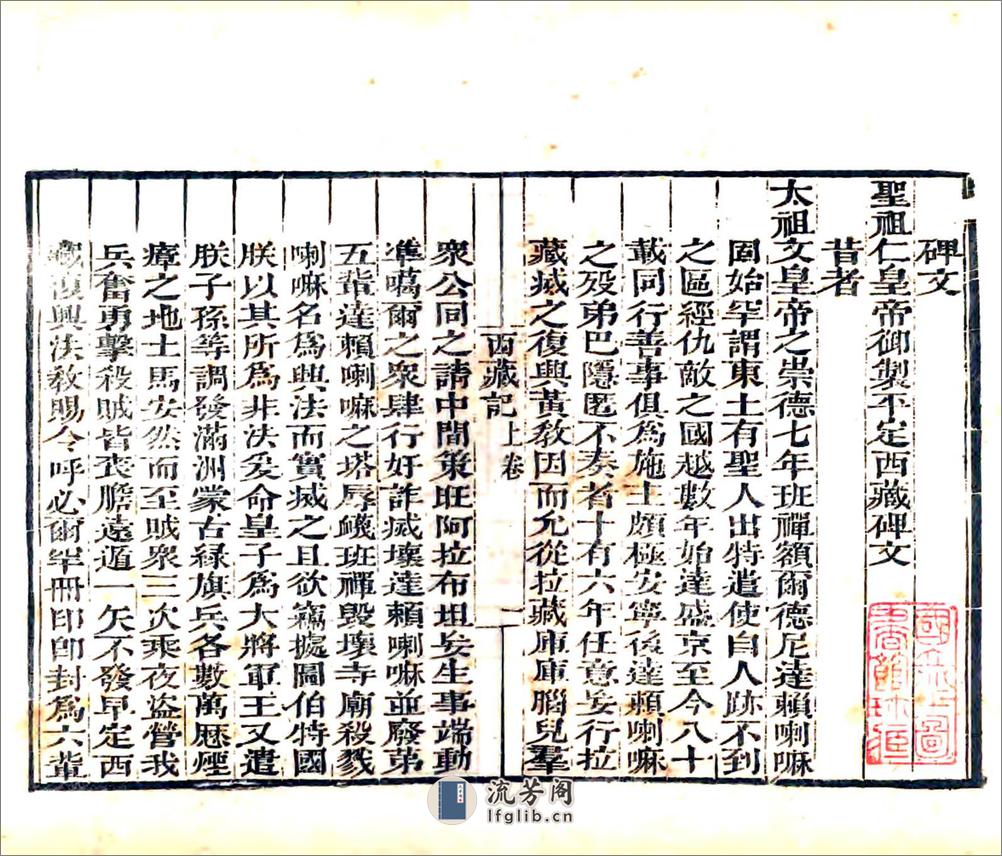 碑文
聖祖仁皇帝御製平定西藏碑文
昔者
太祖文皇帝之崇德七年班禪額爾德尼達賴喇嘛
固始罕謂東土有聖人出特遣使自人跡不到
之區經仇敵之國越數年始達盛京至今八十
載同行善事俱爲施主頗極安寧後達賴喇嘛
之歿弟巴隱匿不奏者十有六年任意妄行拉
藏滅之復興黃教因而允從拉藏庫庫腦兒羣
西藏記 上卷 一
衆公同之請中間策旺阿拉布坦妄生事端動
準噶爾之衆肆行奸詐滅壞達賴喇嘛並廢弟
五輩達賴喇嘛之塔辱衊班禪毀壞寺廟殺戮
喇嘛名爲興法而實滅之且欲竊據圖伯特國
朕以其所爲非法爰命皇子爲大將軍王又遣
朕子孫等調發滿洲蒙古綠旗兵各數萬歷煙
瘴之地士馬安然而至賊衆三次乘夜盜營我
兵奮勇擊殺賊皆喪膽遠遁一矢不發平定西
藏復興法教賜今呼必爾罕冊印封爲六輩
流芳阁
lfglib.cn